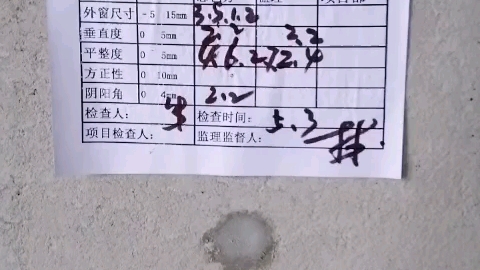 外窗尺寸 -5 15mm 3.3.1.2
垂直度 0 5mm 2.2 2.2
平整度 0 5mm
方正性 0 10mm
阴阳角 0 4mm 2.2
检查人： 检查时间： 5.3
项目检查人： 监理监督人：